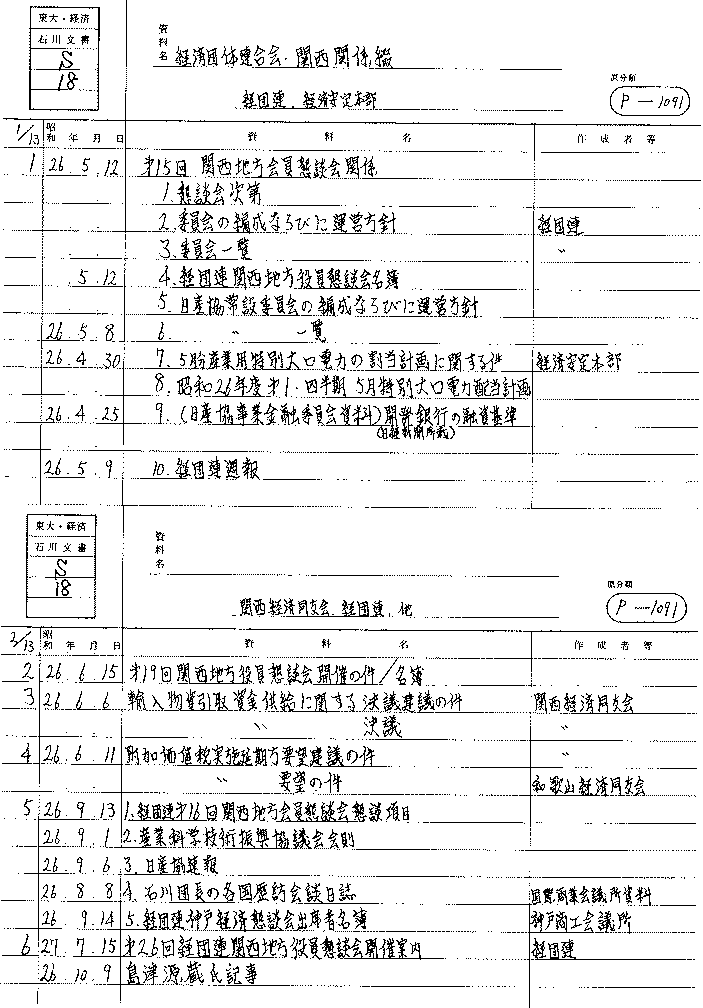 東大・経済
石川文書
S
18
資料名 経済団体連合会・関西関係綴
経団連、経済安定本部
原分類
P-1091
1/13 昭和 年 月 日 資料名 作成者等
1 26.5.12 第15回 関西地方会員懇談会関係
1.懇談会次第
2.委員会の編成ならびに運営方針 経団連
3.委員会一覧 〃
5.12 4.経団連関西地方役員懇談会名簿
5.日産協常設委員会の編成ならびに運営方針
26.5.8 6. 〃 一覧
26.4.30 7.5月分産業用特別大口電力の割当計画に関する件 経済安定本部
8.昭和26年度第1・四半期 5月特別大口電力配当計画
26.4.25 9.(日産協事業金融委員会資料)開発銀行の融資基準
(日経新聞所載)
26.5.9 10.経団連週報
東大・経済
石川文書
S
18
資料名
関西経済同友会、経団連、他
原分類
P-1091
2/13 昭和 年 月 日 資料名 作成者等
2 26.6.15 第19回関西地方役員懇談会開催の件/名簿
3 26.6.6 輸入物資引取資金供給に関する決議建議の件 関西経済同友会
〃 決議 〃
4 26.6.11 附加価値税実施延期方要望建議の件 〃
〃 要望の件 和歌山経済同友会
5 26.9.13 1.経団連第16回関西地方会員懇談会懇談項目
26.9.1 2.産業科学技術振興協議会会則
26.9.6 3.日産協速報
26.8.8 4.石川団長の各国歴訪会談日誌 国際商業会議所資料
26.9.14 5.経団連神戸経済懇談会出席者名簿 神戸商工会議所
6 27.7.15 第26回経団連関西地方役員懇談会開催案内 経団連
26.10.9 島津源蔵氏記事